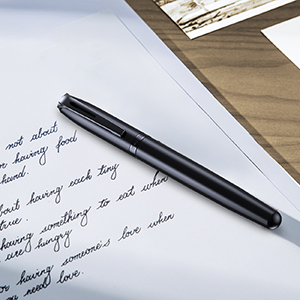 not about
or having food
hand.
about having each tiny
true.
having something to eat when
are hungry
or having someone's love when
you need love.